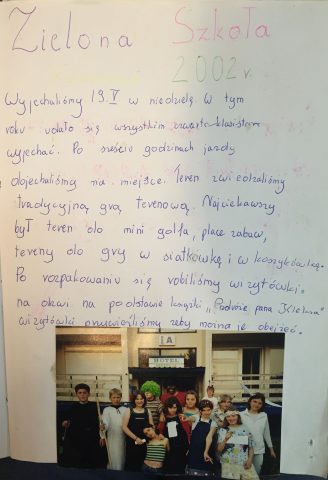 Zielona Szkoła
2002 r.
Wyjechaliśmy 19.V w niedzielę w tym
roku udało się wszystkim czwartoklasistom
wyjechać. Po sześciu godzinach jazdy
dojechaliśmy na miejsce. Teren zwiedzaliśmy
tradycyjną grą terenową. Najciekawszy
był teren do mini golfa, place zabaw,
tereny do gry w siatkówkę i w koszykówkę.
Po rozpakowaniu się robiliśmy wizytówki
na drzwi na podstawie książki „Podróże pana Kleksa"
wizytówki przywieźliśmy żeby można je obejżeć.
IA
HOTEL